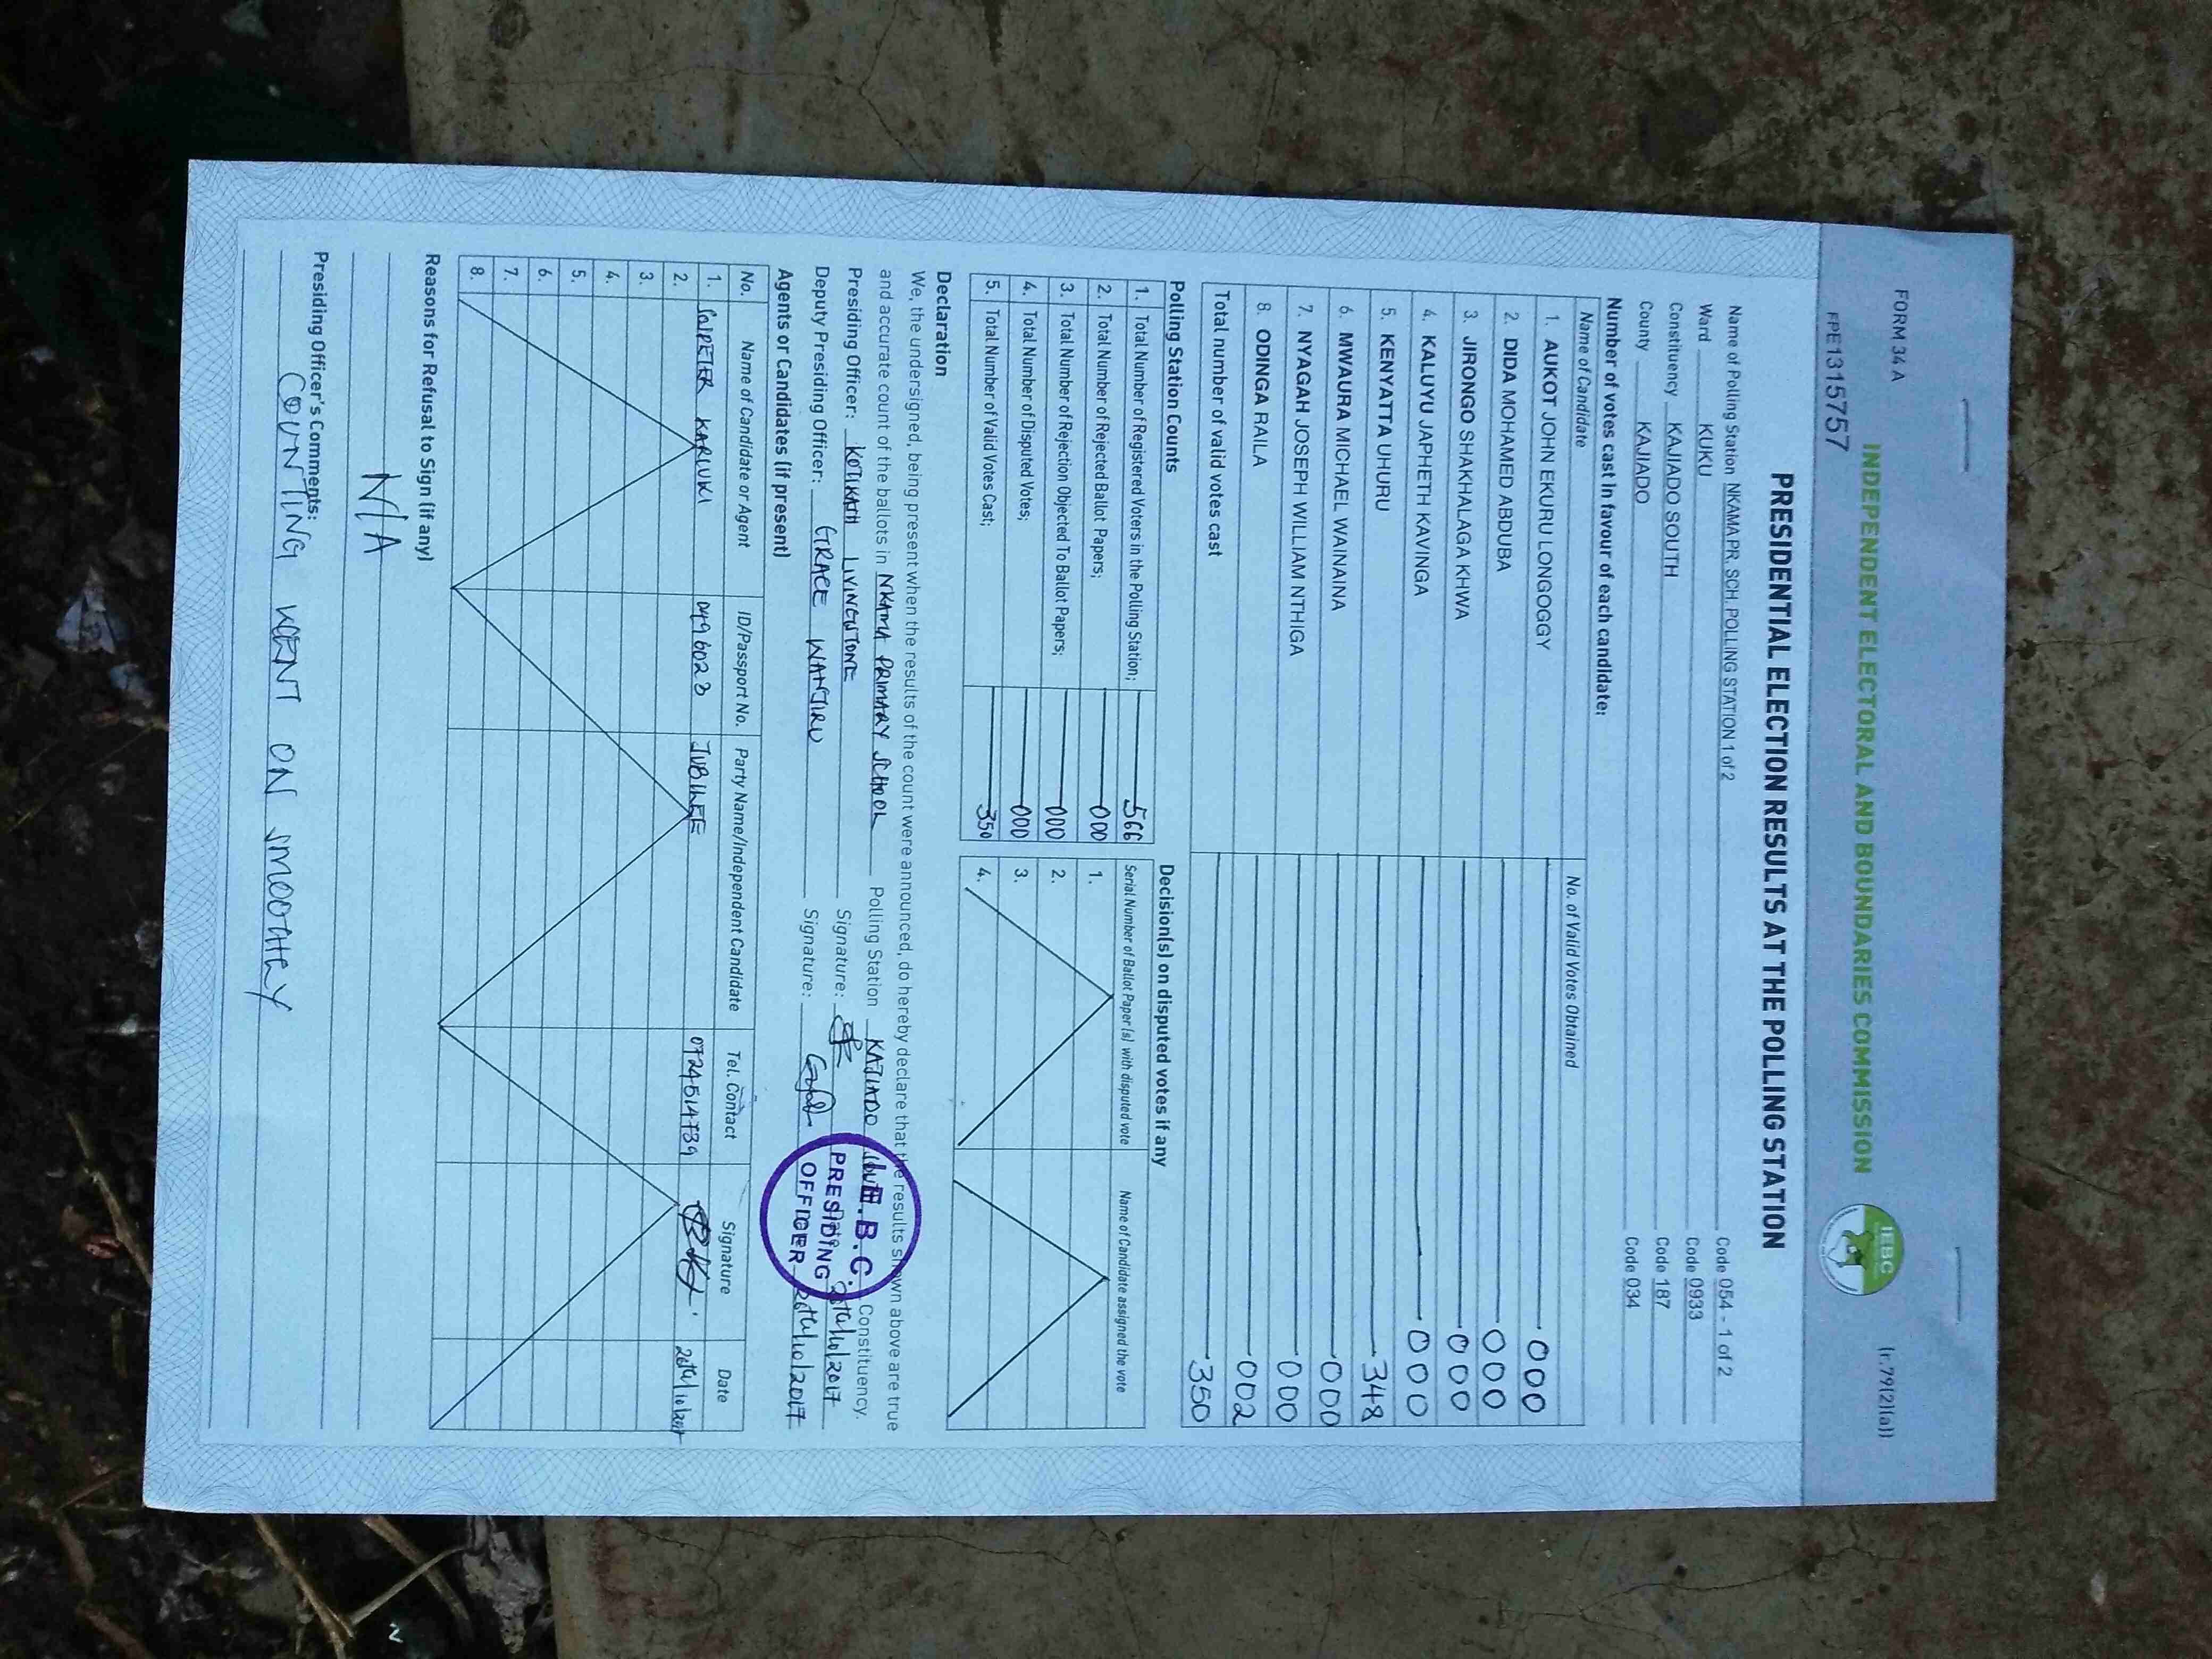 FORM 34 A
(r.79(2)(a))
FPE1315757
INDEPENDENT ELECTORAL AND BOUNDARIES COMMISSION
IEBC
PRESIDENTIAL ELECTION RESULTS AT THE POLLING STATION
Name of Polling Station NKAMA PR. SCH. POLLING STATION 1 of 2 Code 054 - 1 of 2
Ward KUKU Code 0933
Constituency KAJIADO SOUTH Code 187
County KAJIADO Code 034
Number of votes cast in favour of each candidate:
Name of Candidate No. of Valid Votes Obtained
1. AUKOT JOHN EKURU LONGOGGY 000
2. DIDA MOHAMED ABDUBA 000
3. JIRONGO SHAKHALAGA KHWA 000
4. KALUYU JAPHETH KAVINGA 000
5. KENYATTA UHURU 348
6. MWAURA MICHAEL WAINAINA 000
7. NYAGAH JOSEPH WILLIAM NTHIGA 000
8. ODINGA RAILA 002
Total number of valid votes cast 350
Polling Station Counts
1. Total Number of Registered Voters in the Polling Station; 566
2. Total Number of Rejected Ballot Papers; 000
3. Total Number of Rejection Objected To Ballot Papers; 000
4. Total Number of Disputed Votes; 000
5. Total Number of Valid Votes Cast; 350
Decision(s) on disputed votes if any
Serial Number of Ballot Paper(s) with disputed vote Name of Candidate assigned the vote
1.
2.
3.
4.
Declaration
We, the undersigned, being present when the results of the count were announced, do hereby declare that the results shown above are true
and accurate count of the ballots in NKAMA PRIMARY SCHOOL Polling Station KAJIADO Constituency.
Presiding Officer: LIVINGSTONE Signature: 26th/10/2017
Deputy Presiding Officer: GRACE WANJIRU Signature: 26th/10/2017
I.E.B.C.
PRESIDING
OFFICER
Agents or Candidates (if present)
No. Name of Candidate or Agent ID/Passport No. Party Name/Independent Candidate Tel. Contact Signature Date
1. KARIUKI 0496023 JUBILEE 0724514739 26th/10/2017
2.
3.
4.
5.
6.
7.
8.
Reasons for Refusal to Sign (if any)
N/A
Presiding Officer's Comments:
COUNTING WENT ON SMOOTHLY